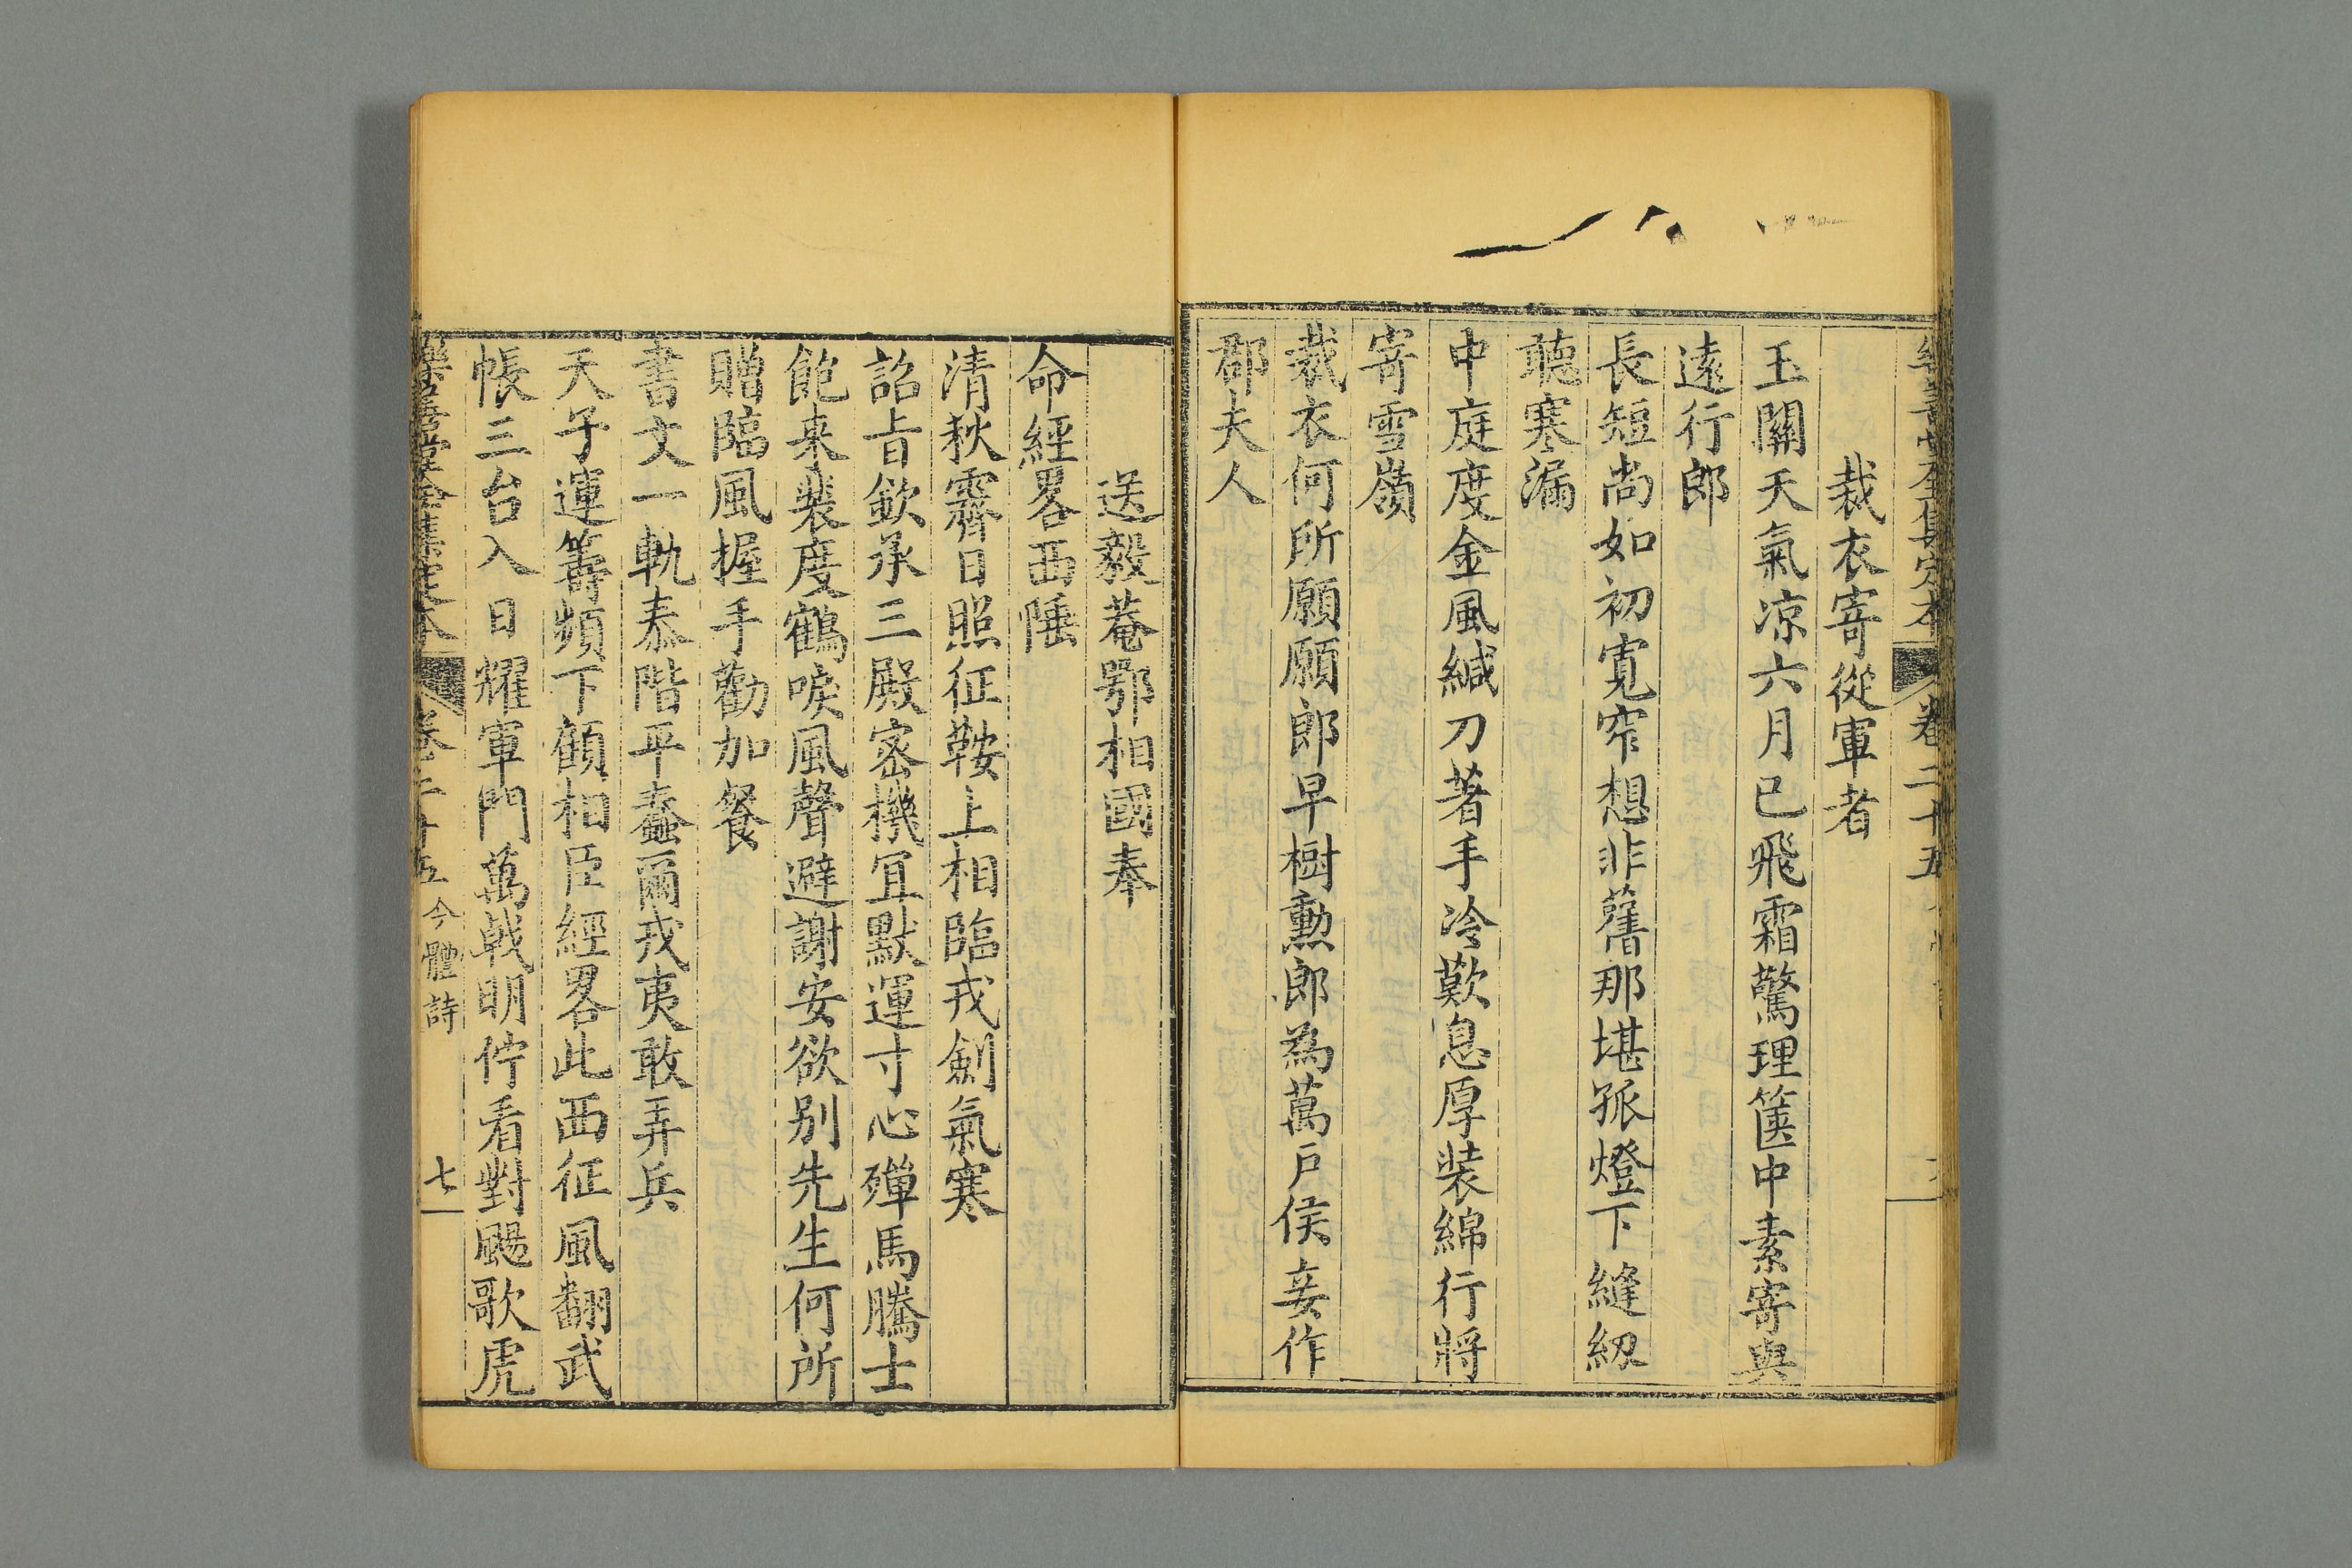 樂善堂全集定本　卷二十五
裁衣寄從軍者
玉關天氣凉六月已飛霜驚理篋中素寄與
遠行郎
長短尚如初寬窄想非舊那堪孤燈下縫紉
聽寒漏
中庭度金風緘刀著手冷歎息厚裝綿行將
寄雪嶺
裁衣何所願願郎早樹勲郎為萬戸侯妾作
郡夫人
送毅菴鄂相國奉
命經畧西陲
清秋霽日照征鞍上相臨戎劍氣寒
詔旨欽承三殿密機宜默運寸心殫馬騰士
飽来裴度鶴唳風聲避謝安欲别先生何所
贈臨風握手勸加餐
書文一軌泰階平蠢爾戎夷敢弄兵
天子運籌頻下顧相臣經畧此西征風翻武
帳三台入日耀軍門萬戟明佇看對颺歌虎
樂善堂全集定本　卷二十五　今體詩　七